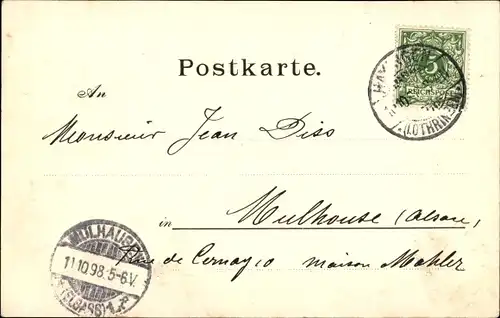 Postkarte.
5
REICHSPOST
HAYINGEN
(LOTHRINGEN)
An
Monsieur Jean Diss
in Mulhouse (Alsace)
Rue de Cernay 10 maison Mahler
MÜLHAUSEN
11.10.98.5-6V.
(ELSASS) 1.